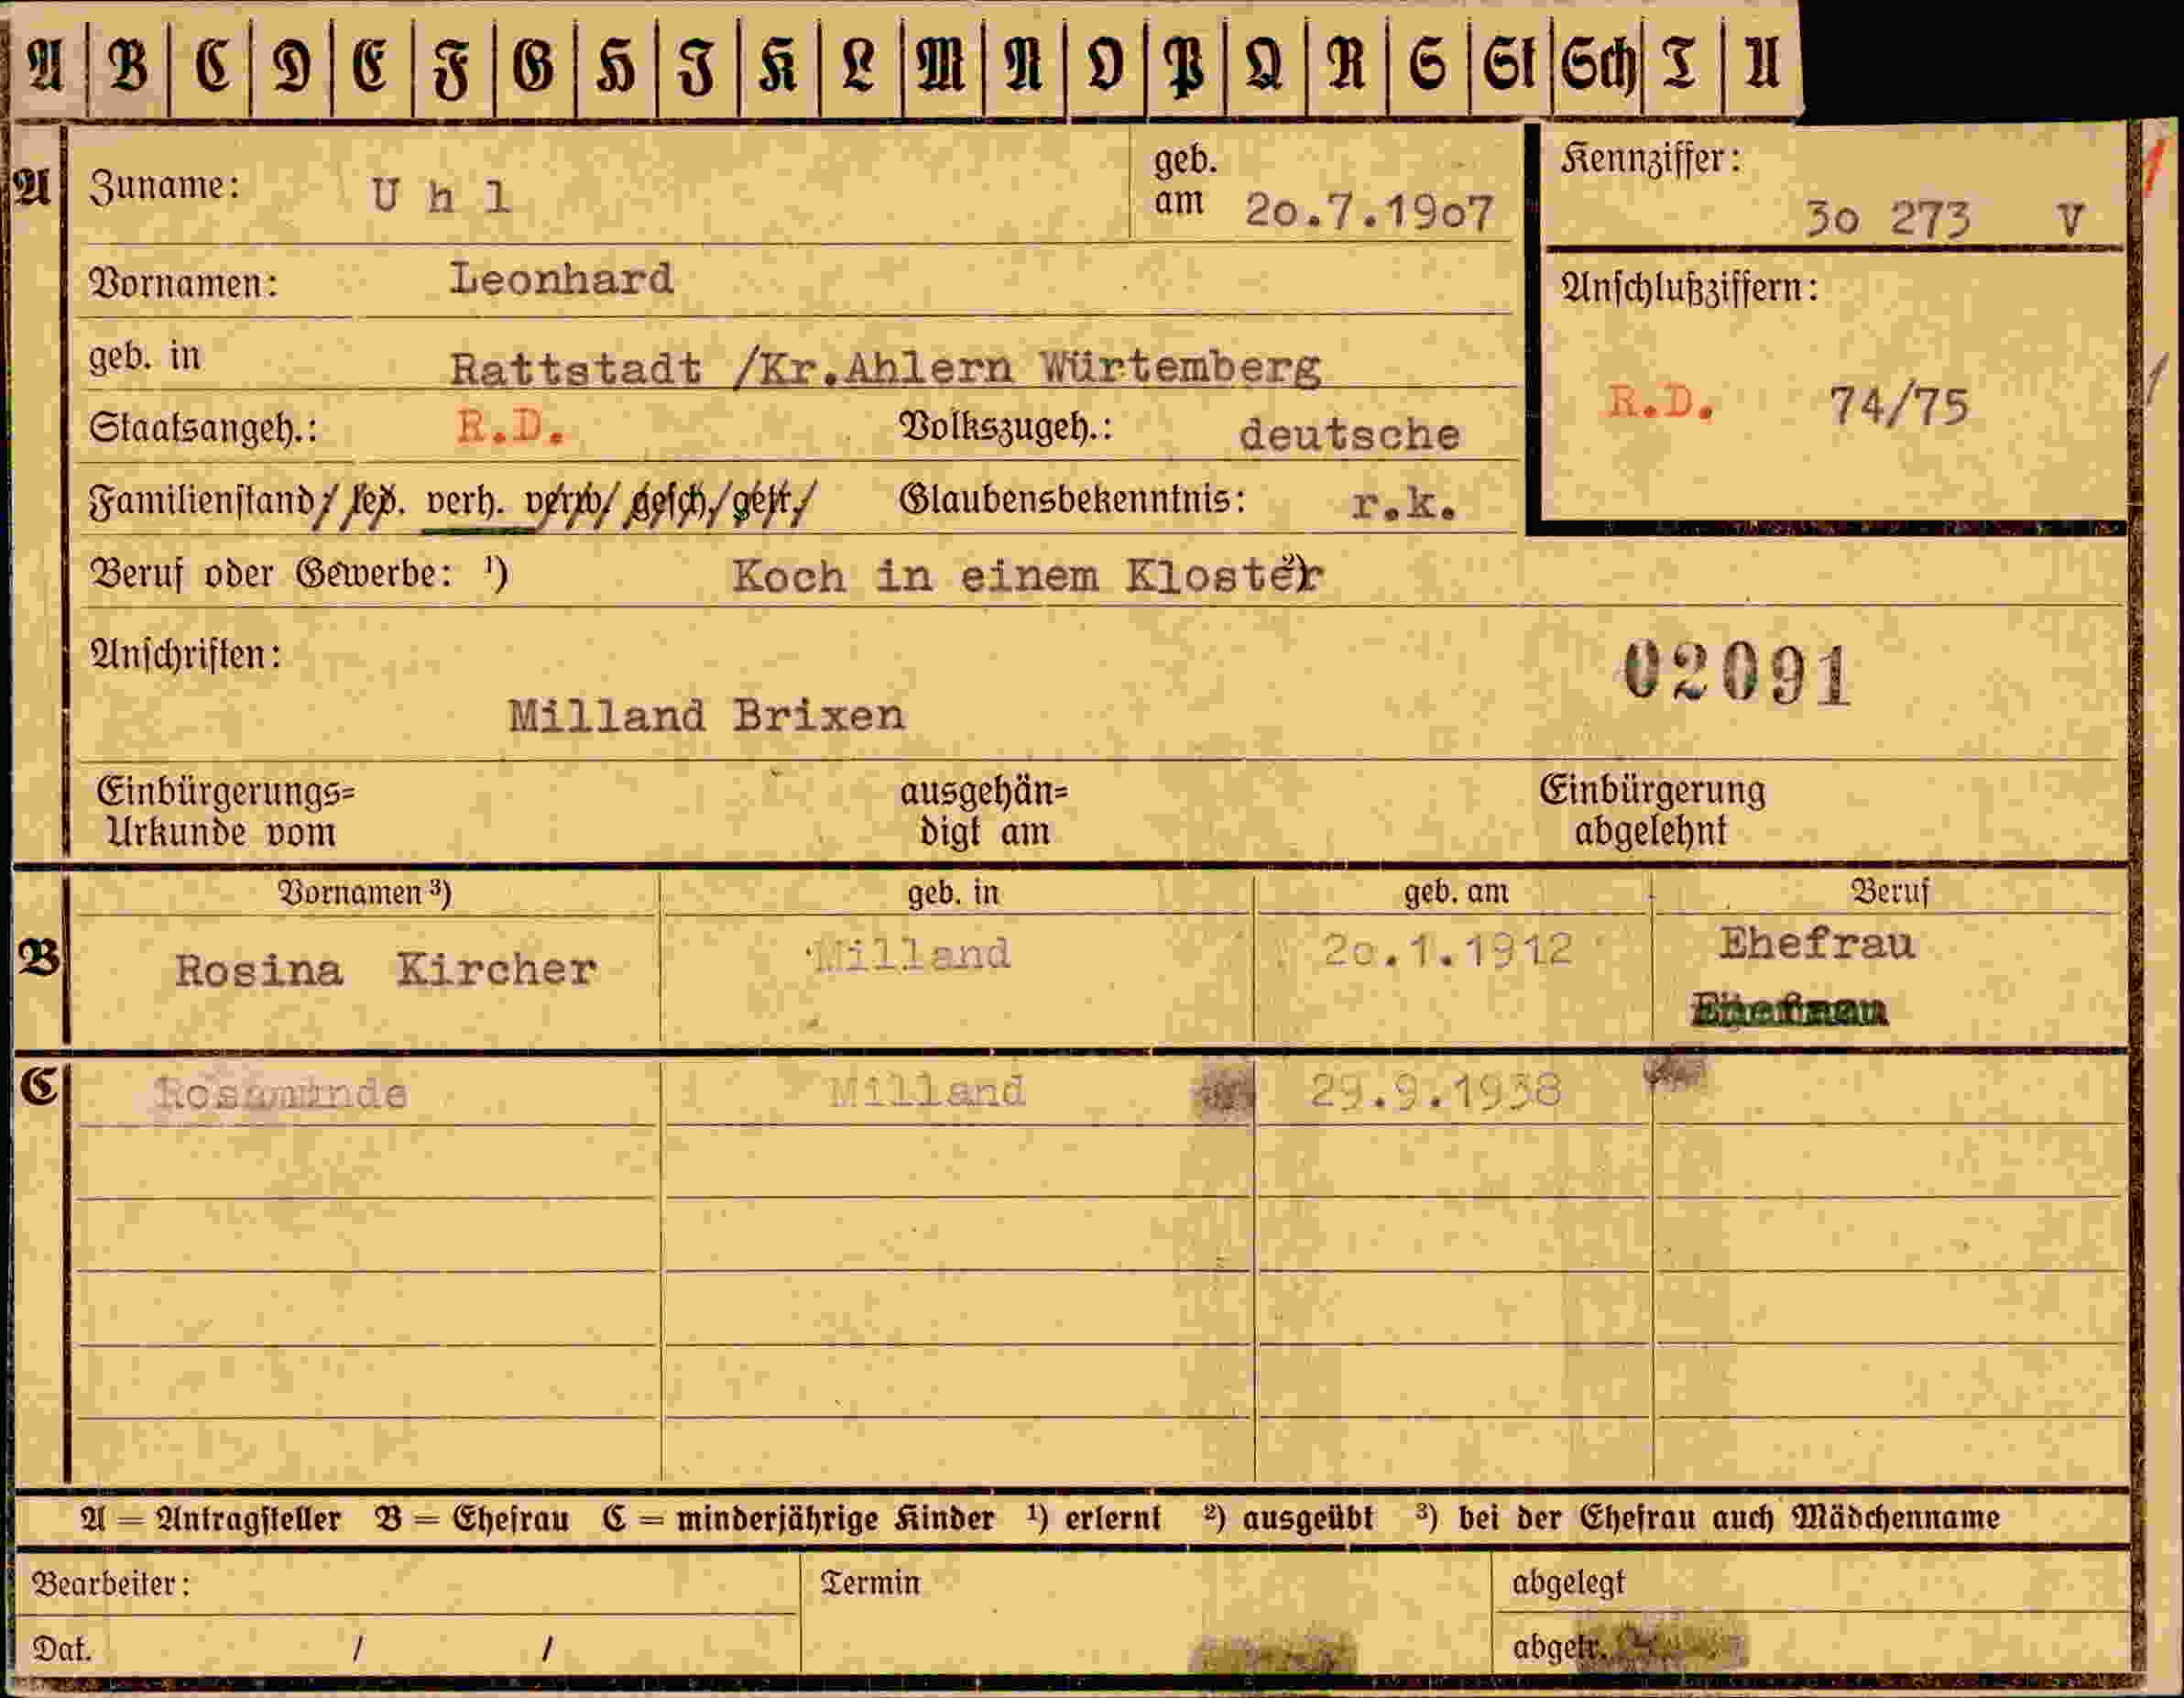 A B C D E F G H J K L M N O P Q R S St Sch T U
A Zuname: U h l geb. am 20.7.1907
Kennziffer: 30 273 V
Vornamen: Leonhard
Anschlußziffern:
geb. in Rattstadt /Kr.Ahlern Würtemberg
R.D. 74/75
Staatsangeh.: R.D. Volkszugeh.: deutsche
Familienstand: led. verh. verw. gesch. getr. Glaubensbekenntnis: r.k.
Beruf oder Gewerbe: ¹) Koch in einem Kloster ²)
Anschriften:
02091
Milland Brixen
Einbürgerungs= ausgehän= Einbürgerung
Urkunde vom digt am abgelehnt
Vornamen ³) geb. in geb. am Beruf
B Rosina Kircher Milland 20.1.1912 Ehefrau
Ehefrau
C Rosamunde Milland 29.9.1938
A = Antragsteller B = Ehefrau C = minderjährige Kinder ¹) erlernt ²) ausgeübt ³) bei der Ehefrau auch Mädchenname
Bearbeiter: Termin abgelegt
Dat. / / abgetr.